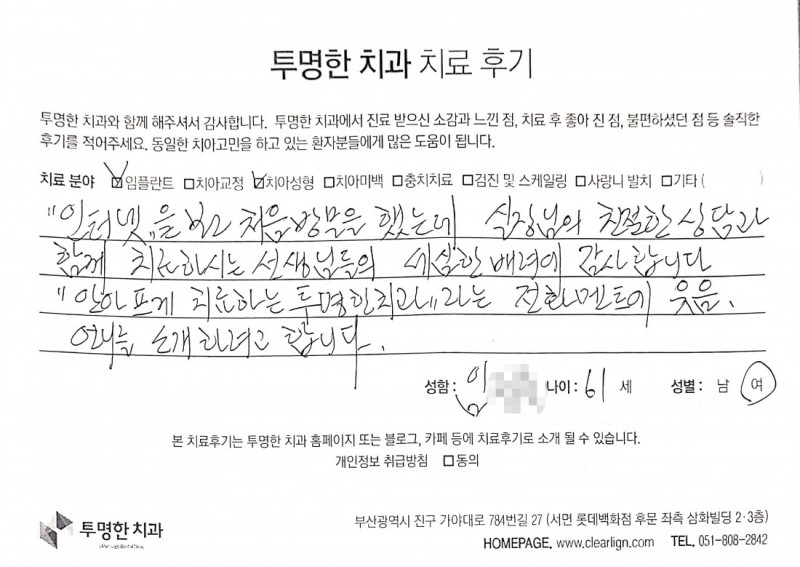 투명한 치과 치료 후기
투명한 치과와 함께 해주셔서 감사합니다. 투명한 치과에서 진료 받으신 소감과 느낀 점, 치료 후 좋아 진 점, 불편하셨던 점 등 솔직한
후기를 적어주세요. 동일한 치아고민을 하고 있는 환자분들에게 많은 도움이 됩니다.
치료 분야 ☑임플란트 □치아교정 ☑치아성형 □치아미백 □충치치료 □검진 및 스케일링 □사랑니 발치 □기타 ( )
"인터넷"을 보고 처음방문을 했는데 실장님의 친절한 상담과
함께 치료하시는 선생님들의 세심한 배려에 감사합니다
"안아프게 치료하는 투명한치과"라는 전화멘트에 웃음.
소개하려고 합니다.
성함 : 임 나이 : 61 세 성별 : 남 여
본 치료후기는 투명한 치과 홈페이지 또는 블로그, 카페 등에 치료후기로 소개 될 수 있습니다.
개인정보 취급방침 □동의
투명한 치과
부산광역시 진구 가야대로 784번길 27 (서면 롯데백화점 후문 좌측 삼화빌딩 2·3층)
HOMEPAGE. www.clearlign.com TEL. 051-808-2842